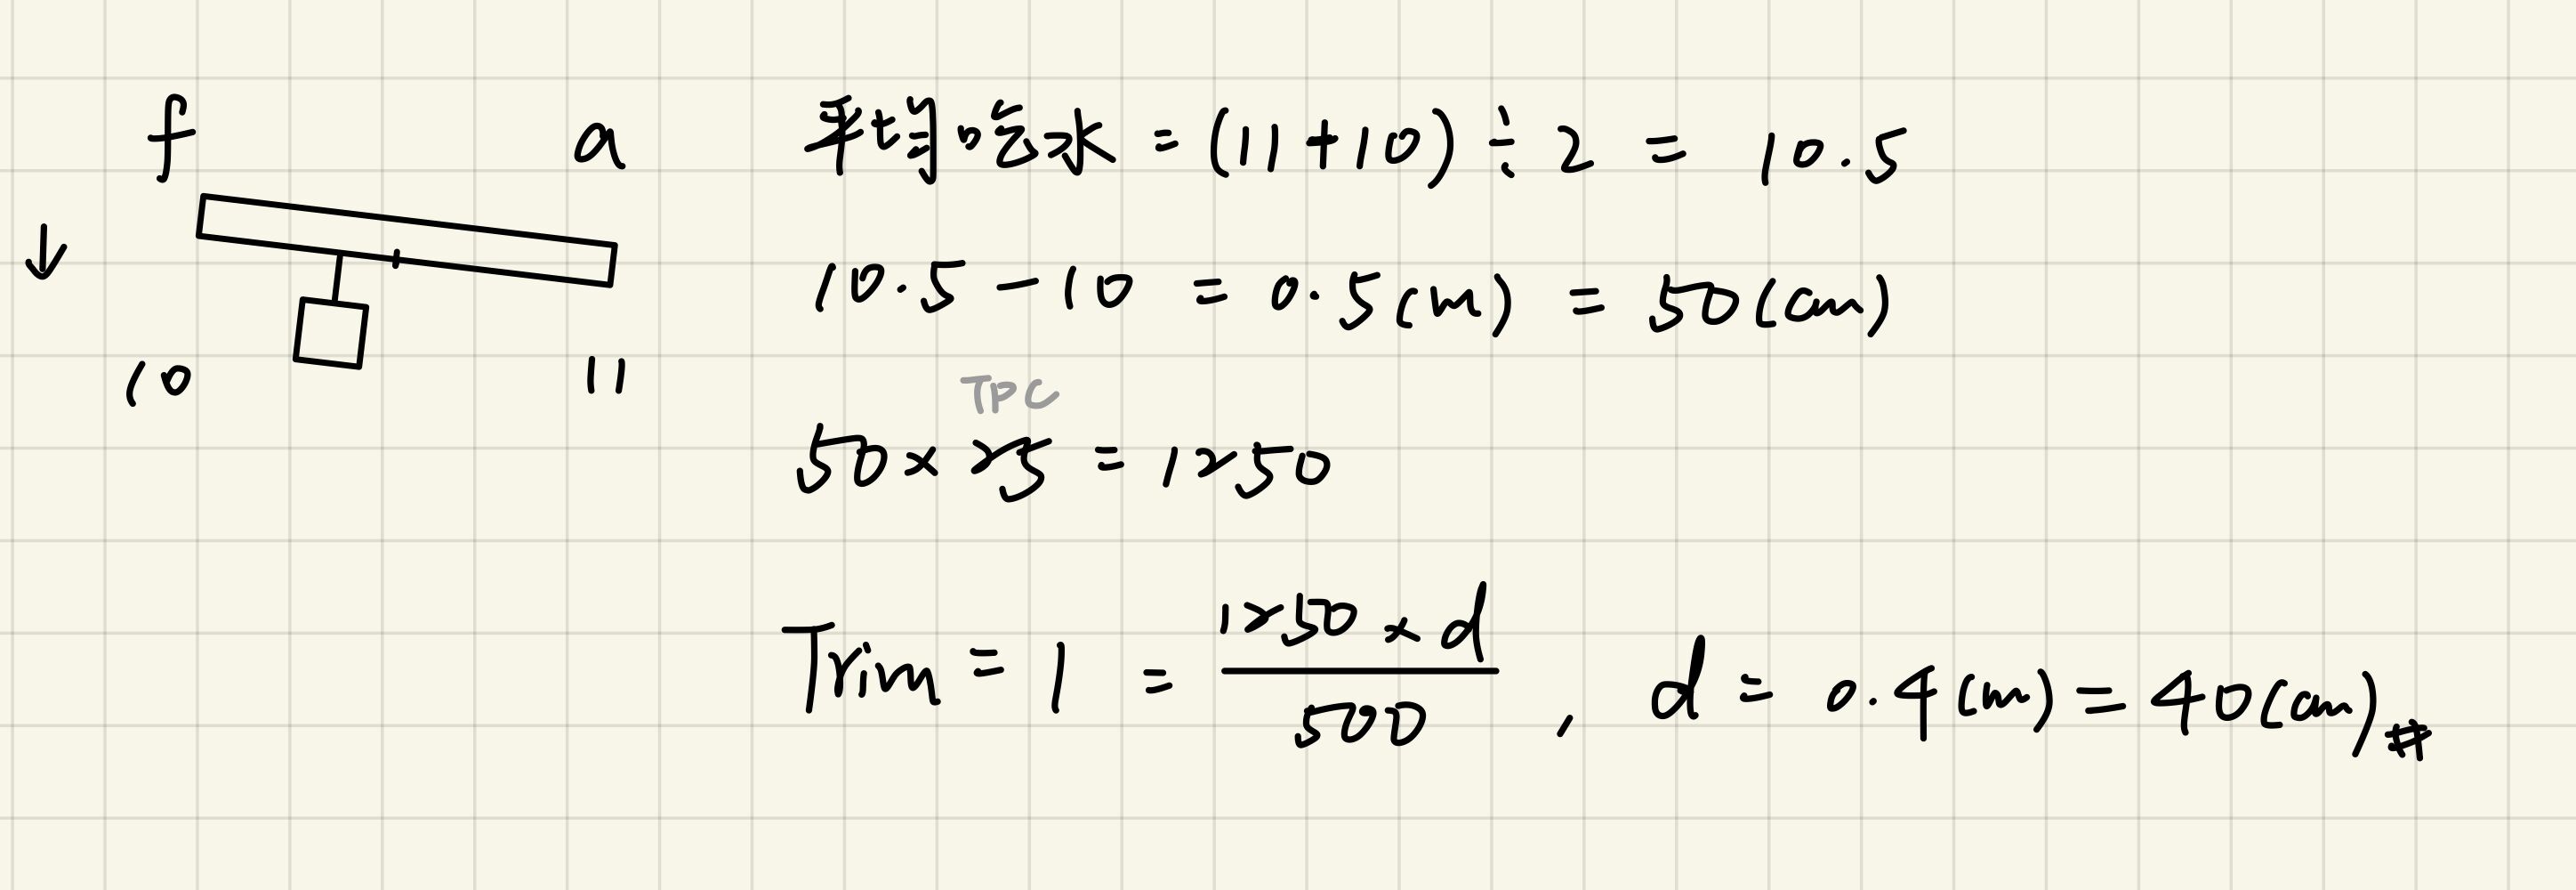 f a
10 11
平均吃水 = (11+10) ÷ 2 = 10.5
10.5 - 10 = 0.5 (m) = 50 (cm)
TPC
50 × 25 = 1250
Trim = 1 = \frac{1250 × d}{500} , d = 0.4 (m) = 40 (cm) #